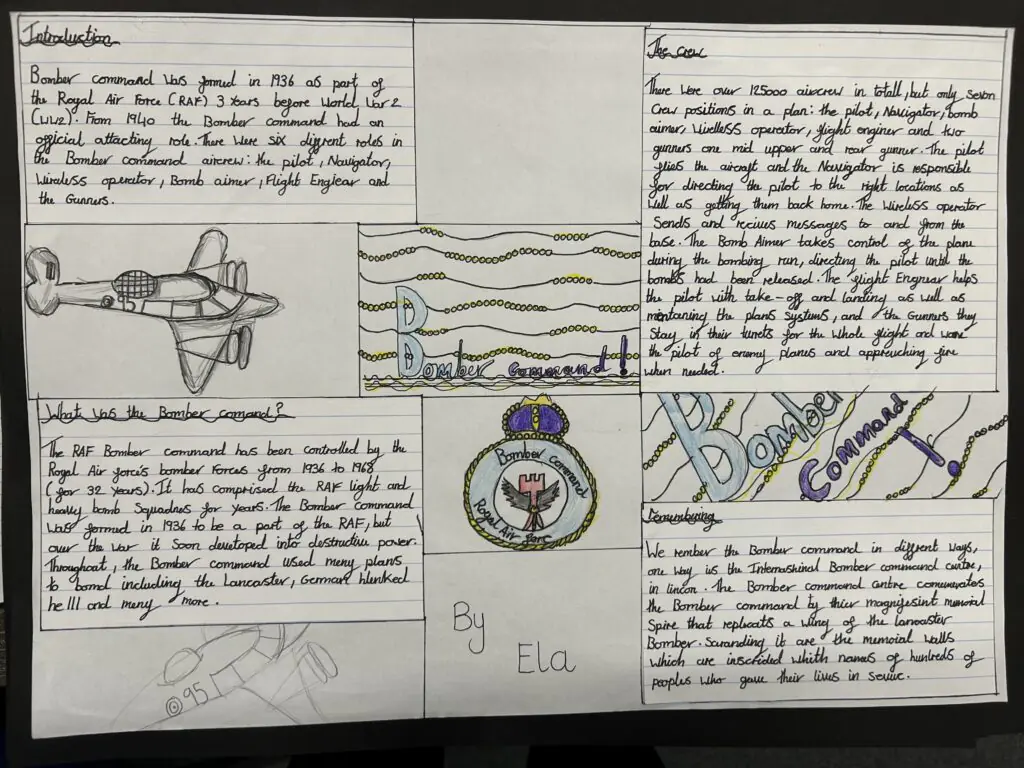 Introduction
Bomber command was formed in 1936 as part of
the Royal Air Force (RAF) 3 years before World War 2
(WW2). From 1940 the Bomber command had an
official attacting role. There were six diffrent roles in
the Bomber command aircrew: the pilot, Navigator,
Wireless operator, Bomb aimer, Flight Engiear and
the Gunners.
The crew
There were over 125000 aircrew in totall, but only Sevon
Crew positions in a plan: the pilot, Navigator, bomb
aimer, Wirelless operator, flight enginer and two
gunners one mid upper and rear gunner. The pilot
flies the aircraft and the Navigator is responsible
for directing the pilot to the right locations as
well as getting them back home. The Wireless operator
Sends and recives messages to and from the
base. The Bomb Aimer takes control of the plane
during the bombing run, directing the pilot until the
bombs had been released. The flight Engiear helps
the pilot with take-off and landing as well as
mentaning the plans systems, and the Gunners they
Stay in their turrets for the whole flight and warne
the pilot of enemy planes and approuching fire
when needed.
951
B
Bomber command!
What was the Bomber comand?
The RAF Bomber command has been controlled by the
Royal Air force's bomber Forces from 1936 to 1968
(for 32 years). It has comprised the RAF light and
heavy bomb Squadnes for years. The Bomber command
was formed in 1936 to be a part of the RAF, but
over the war it Soon developed into destructive power.
Throughout, the Bomber command used meny plans
to bomd including the Lancaster, German hienked
he 111 and meny more.
Bomber command
Royal Air force
Bomber
Command!
We rember the Bomber command in diffrent ways,
one way is the Internashinal Bomber command centre,
in lincon. The Bomber command centre comemerates
the Bomber command by thier magnifesint memorial
Spire that replicats a wing of the lancaster
Bomber. Saranding it are the memoial walls
which are inscrided whith names of hundreds of
peoples who gave their lives in Servic.
951
By
Ela